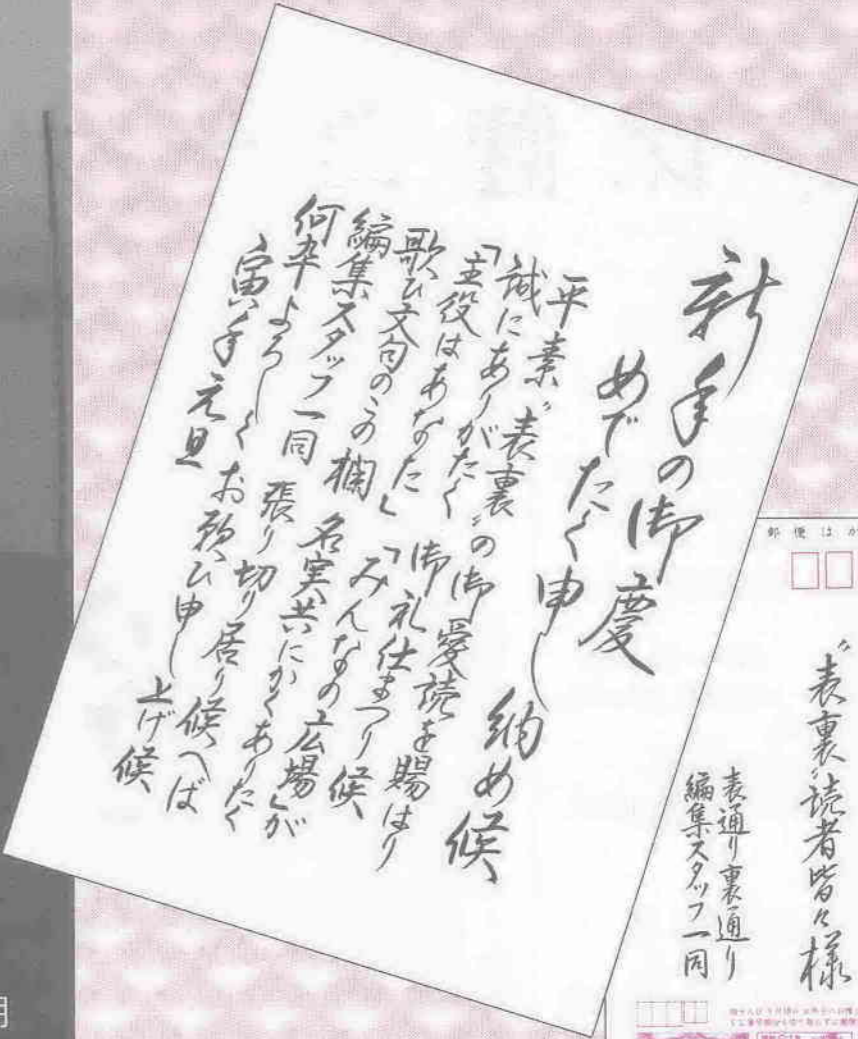 新年の御慶
めでたく申し納め候
平素〝表裏〟の御愛読を賜はり
誠にありがたく御礼仕まつり候
「主役はあなた」「みんなの広場」が
歌ひ文句のこの欄 名実共にかくありたく
編集スタッフ一同 張り切り居り候へば
何卒よろしくお願ひ申し上げ候
寅年元旦
郵便はが
〝表裏〟読者皆々様
表通り裏通り
編集スタッフ一同
月